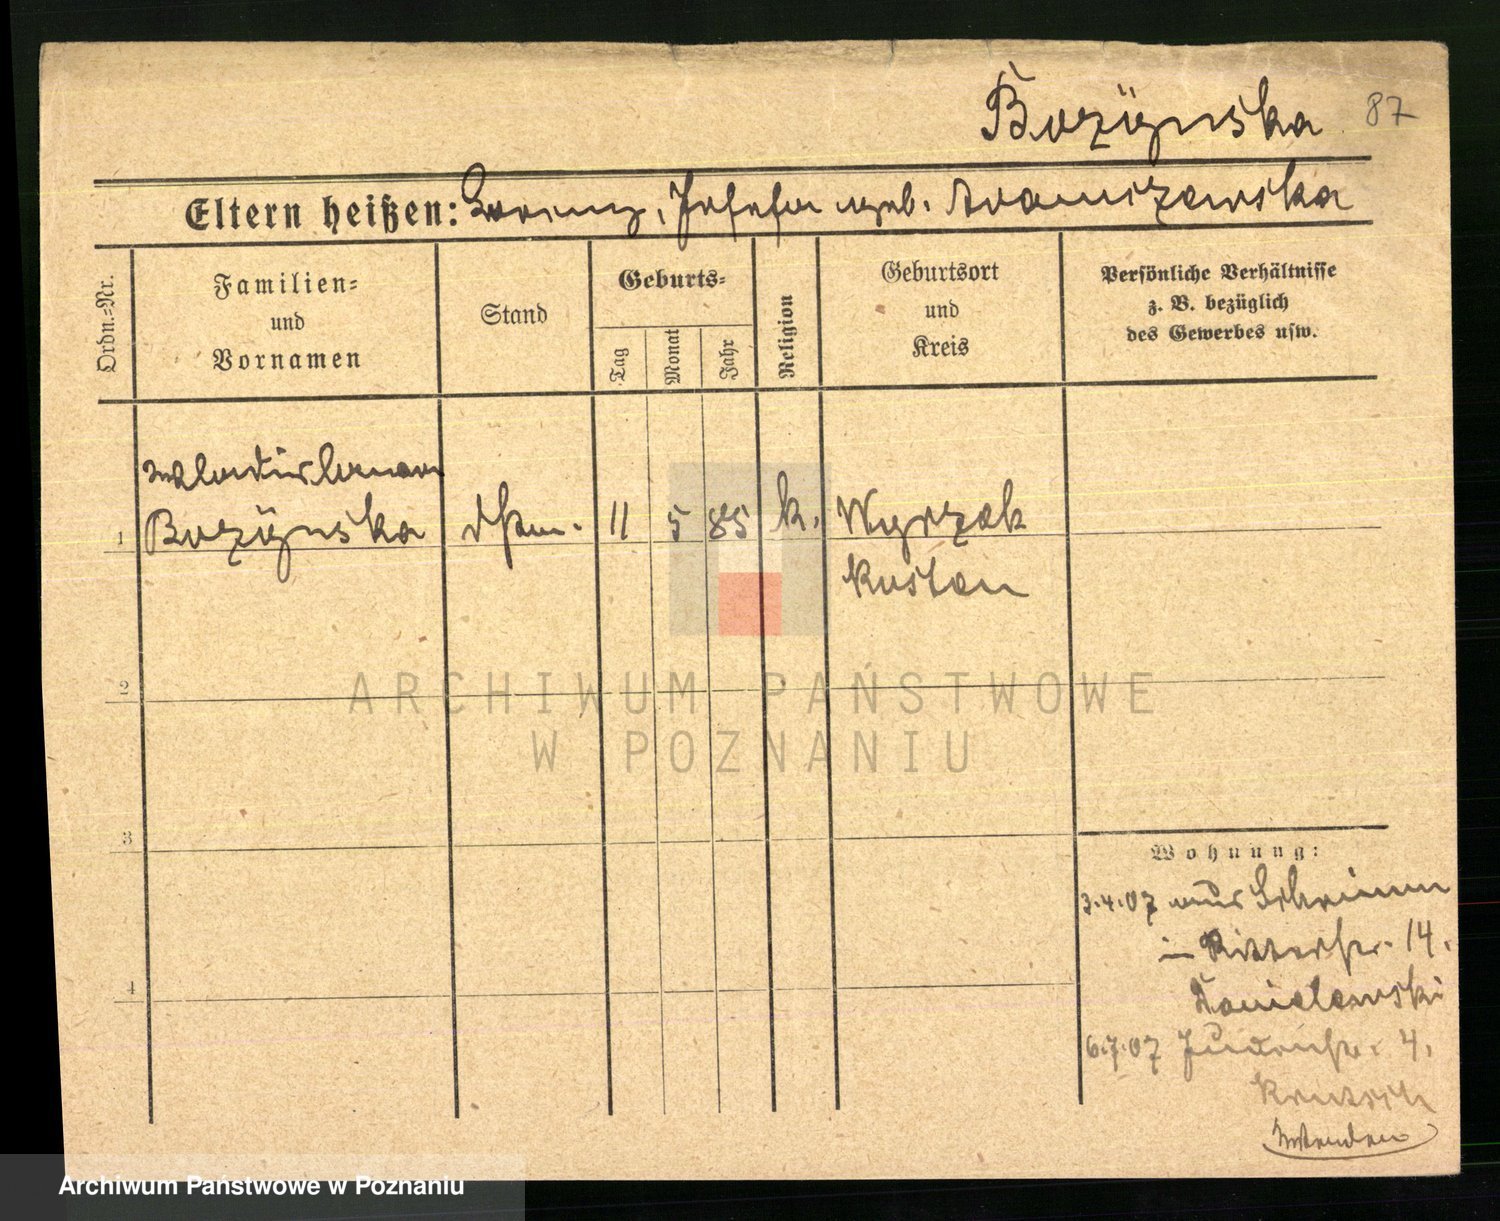 Bozÿnska 87
Eltern heißen: Lorenz, Josefa geb. Adamczewska
Ordn.-Nr.
Familien-
und
Vornamen
Stand
Geburts-
Tag
Monat
Jahr
Religion
Geburtsort
und
Kreis
Persönliche Verhältnisse
z. B. bezüglich
des Gewerbes usw.
1
Bozÿnska
11 5 85 k.
Wyrzek
Kosten
2
3
4
Wohnung:
3.4.07 aus Schrimm
in Ritterstr. 14.
Danielewski
6.7.07 4.
ARCHIWUM PAŃSTWOWE
W POZNANIU
Archiwum Państwowe w Poznaniu